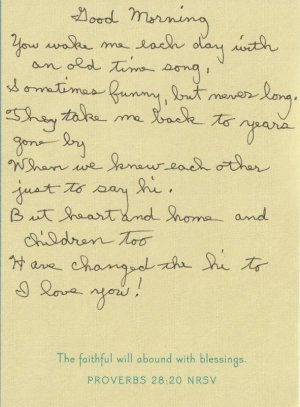 Good Morning
You wake me each day with
an old time song,
Sometimes funny, but never long.
They take me back to years
gone by
When we knew each other
just to say hi.
But heart and home and
children too
Have changed the hi to
I love you!
The faithful will abound with blessings.
PROVERBS 28:20 NRSV